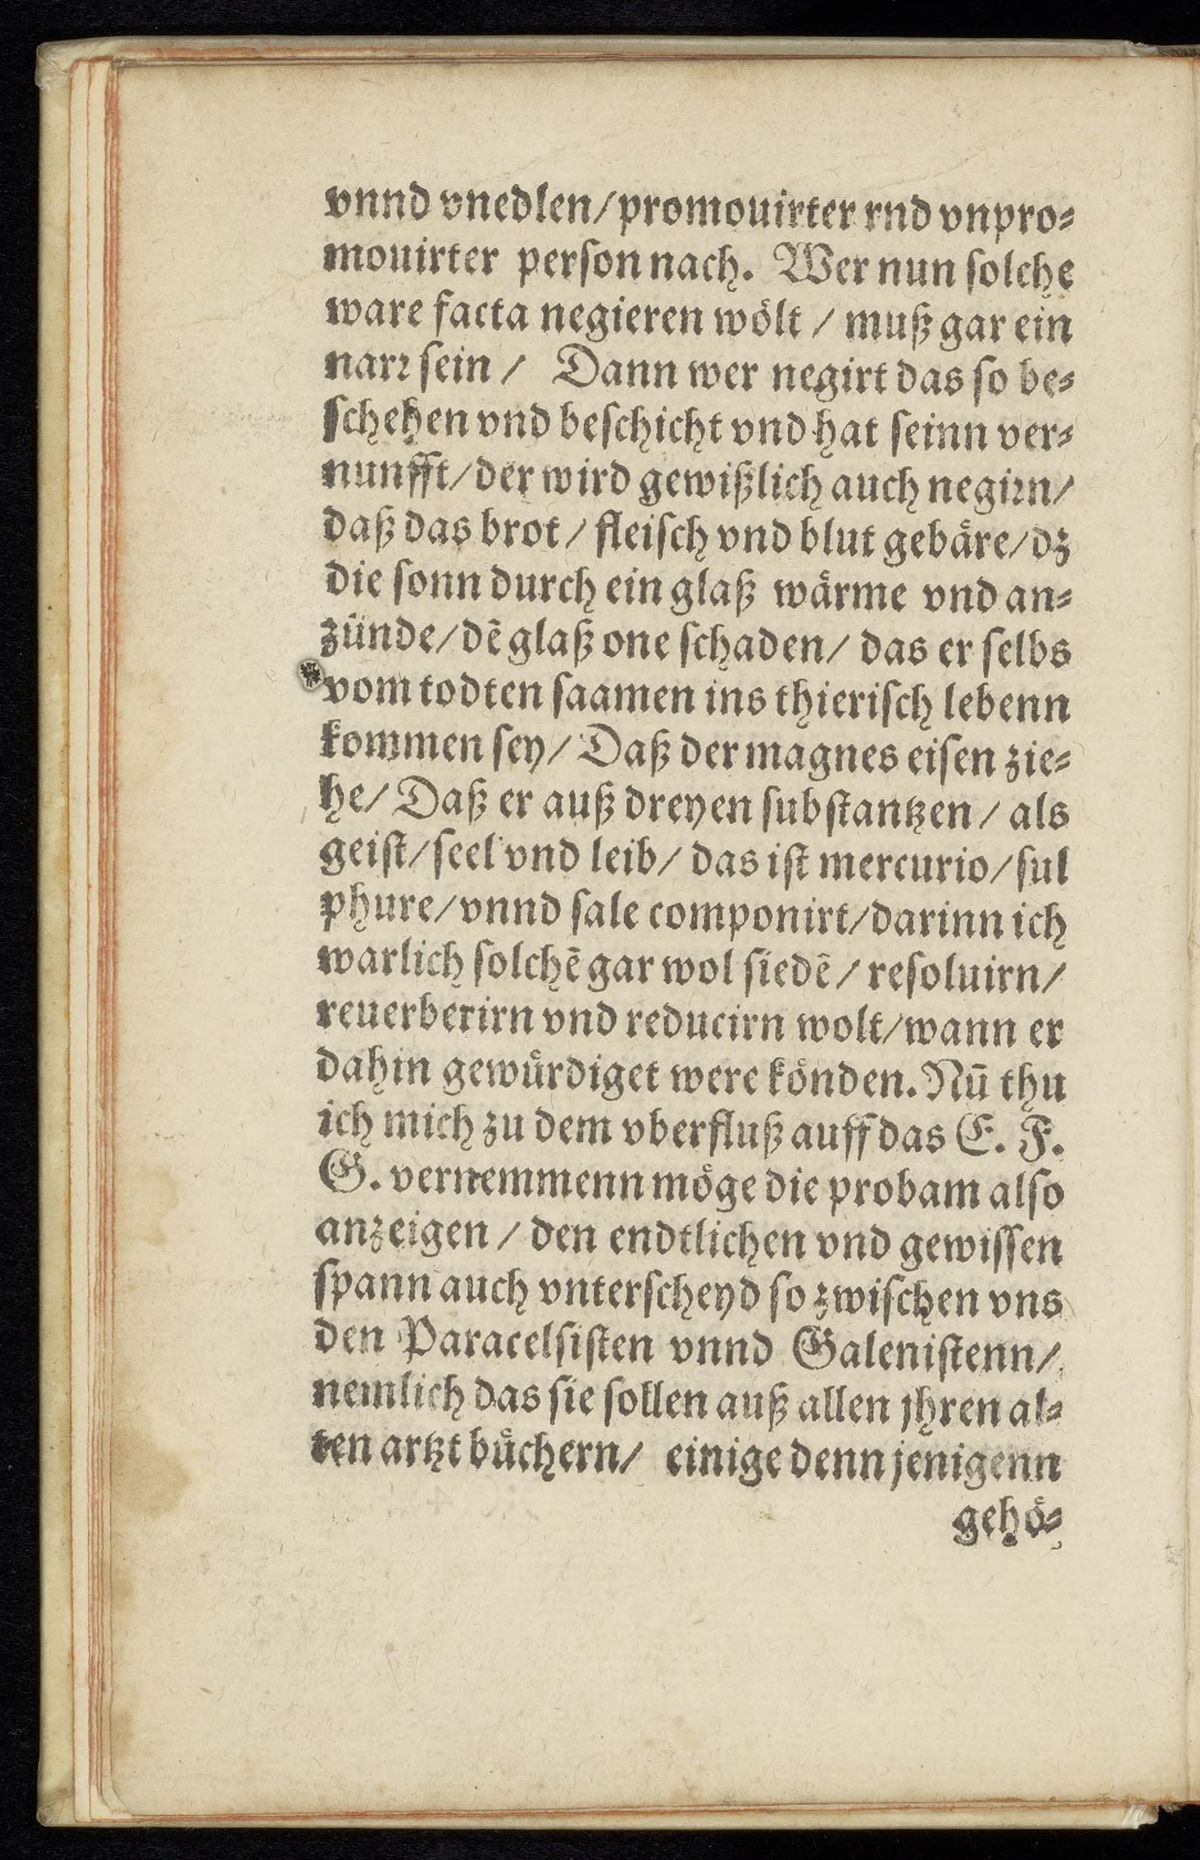 vnnd vnedlen/promouirter rnd vnpro⸗
mouirter perſon nach. Wer nun ſolche
ware facta negieren woͤlt / muß gar ein
narꝛ ſein / Dann wer negirt das ſo be⸗
ſchehen vnd beſchicht vnd hat ſeinn ver⸗
nunfft/der wird gewißlich auch negiꝛn/
daß das brot / fleiſch vnd blut gebaͤre/dz
die ſonn durch ein glaß waͤrme vnd an⸗
zuͤnde/dẽ glaß one ſchaden/ das er ſelbs
vom todten ſaamen ins thieriſch lebenn
kommen ſey/ Daß der magnes eiſen zie⸗
he/ Daß er auß dreyen ſubſtantzen / als
geiſt/ſeel vnd leib/ das iſt mercurio/ſul
phure/vnnd ſale componirt/darinn ich
warlich ſolchẽ gar wol ſiedẽ / reſoluirn/
reuerberirn vnd reducirn wolt/wann er
dahin gewuͤrdiget were koͤnden. Nũ thu
ich mich zu dem vberfluß auff das E. F.
G. vernemmenn moͤge die probam alſo
anzeigen / den endtlichen vnd gewiſſen
ſpann auch vnterſcheyd ſo zwiſchen vns
den Paracelſiſten vnnd Galeniſtenn/
nemlich das ſie ſollen auß allen jhren al⸗
ten artzt buͤchern/ einige denn jenigenn
gehoͤ⸗